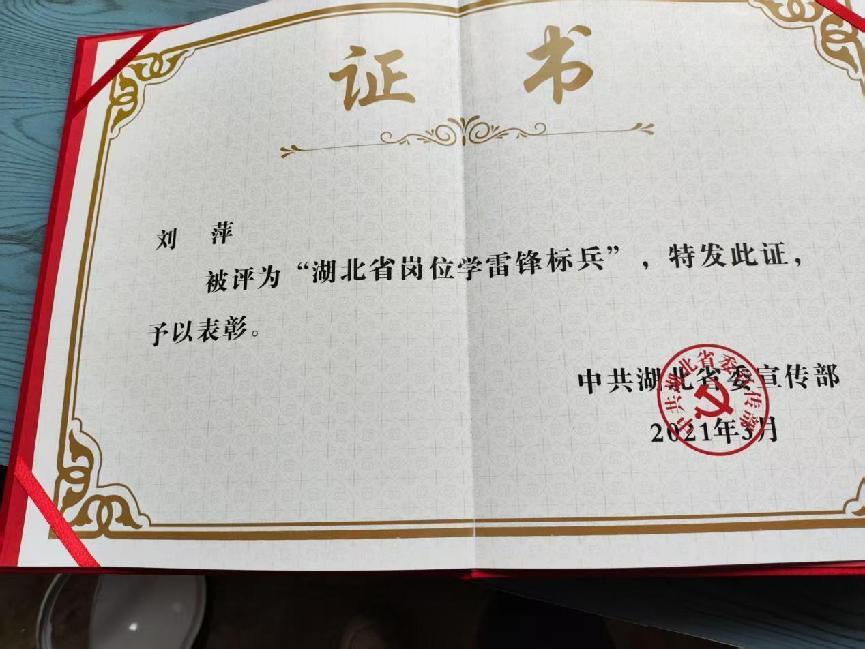 证书
刘 萍
被评为“湖北省岗位学雷锋标兵”，特发此证，
予以表彰。
中共湖北省委宣传部
2021年3月
中共湖北省委宣传部